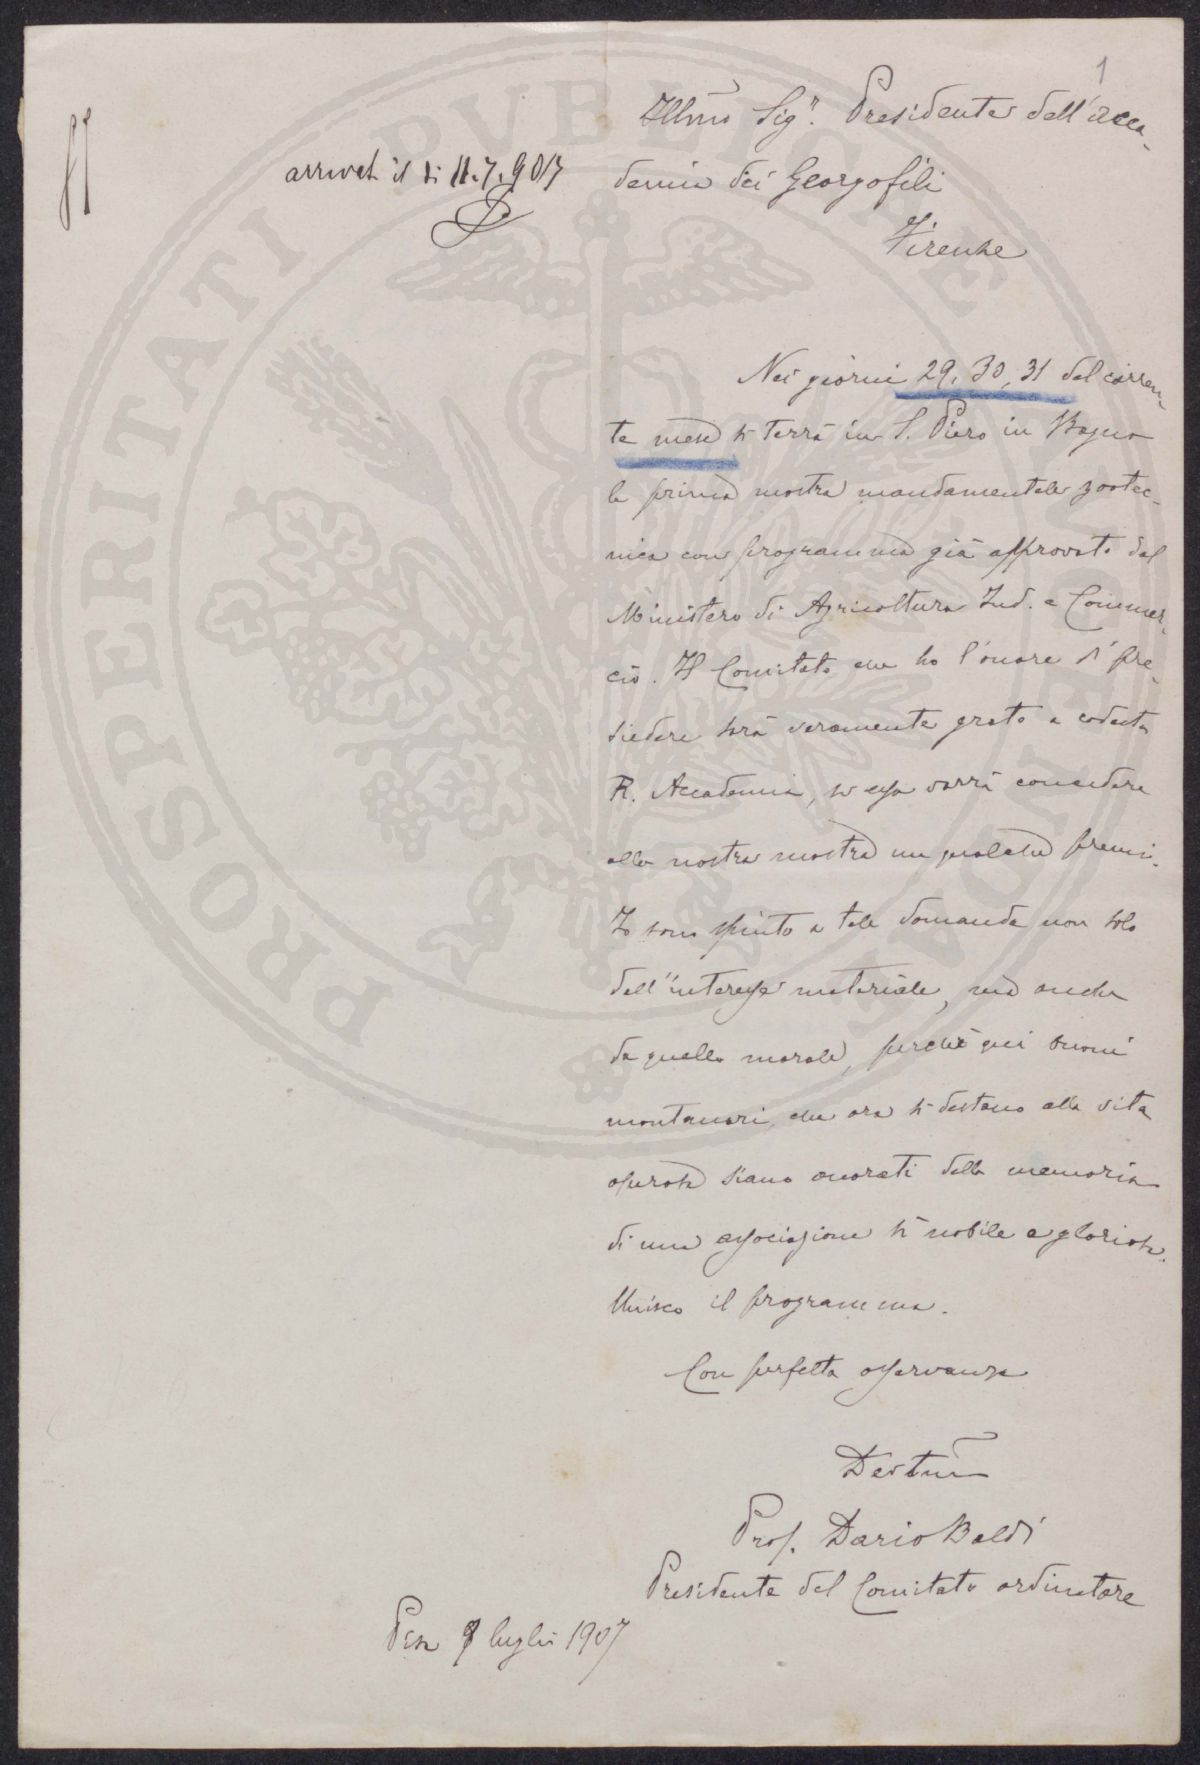 1
Illmo Sigr. Presidente dell'Acca-
demia dei Georgofili
Firenze
arrivata il dì 11.7.907
Nei giorni 29, 30, 31 del corren-
te mese si terrà in S. Piero in Bagno
la prima mostra mandamentale zootec-
nica con programma già approvato dal
Ministero di Agricoltura Ind. e Commer-
cio. Il Comitato che ho l'onore di pre-
siedere sarà veramente grato a codesta
R. Accademia, se essa vorrà concedere
alla nostra mostra un qualche premio.
Io sono spinto a tale domanda non solo
dall'interesse materiale, ma anche
da quello morale, perché quei buoni
montanari, che ora si destano alla vita
operosa siano onorati della memoria
di una associazione sì nobile e gloriosa.
Unisco il programma.
Con perfetta osservanza
Devtmo
Prof. Dario Baldi
Presidente del Comitato ordinatore
Pisa 9 luglio 1907
PROSPERITATI PVBLICAE AVGENDAE